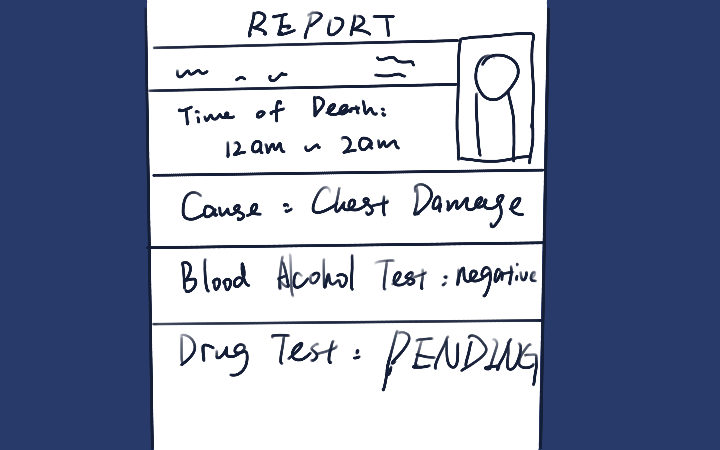 REPORT
Time of Death:
12am ~ 2am
Cause : Chest Damage
Blood Alcohol Test : negative
Drug Test : PENDING